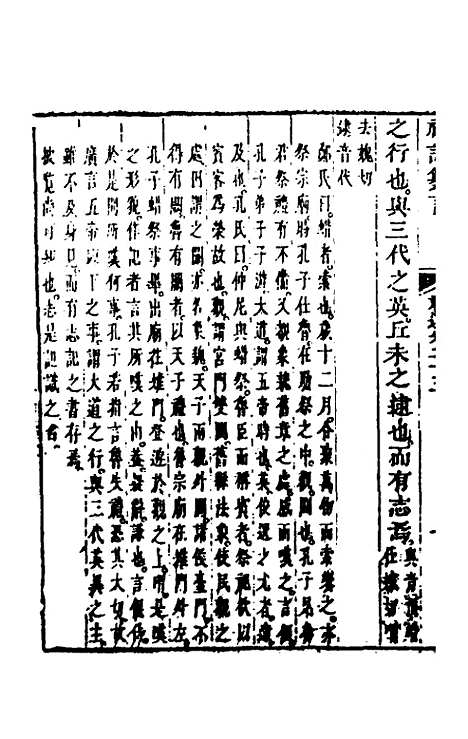 之行也與三代之英丘未之逮也而有志焉
去魏切
逮音代
鄭氏曰蜡者索也歲十二月合聚萬物而索饗之亦
祭宗廟時孔子仕魯在助祭之中觀闕也孔子見魯
君祭禮有不備又覩象魏舊章之處感而嘆之言偃
孔子弟子子游大道謂五帝時也英俊選之尤者逮
及也孔氏曰仲尼與蜡祭魯臣而稱賓者
賓客為榮故也觀謂宮門雙闕舊縣法象使民觀之
處因謂之闕亦名象魏天子兩觀外闕諸侯臺門不
得有闕魯有闕者以天子禮也魯宗廟在雉門外左
孔子蜡祭事畢出廟往雉門登遊於觀之上
於是問所嘆何事孔子若指言魯失禮恐其大切故
廣言五帝以下之事謂大道之行與三代英異之主
雖不及身見而有志記之書存焉
披覽尚可知也志是記識之名